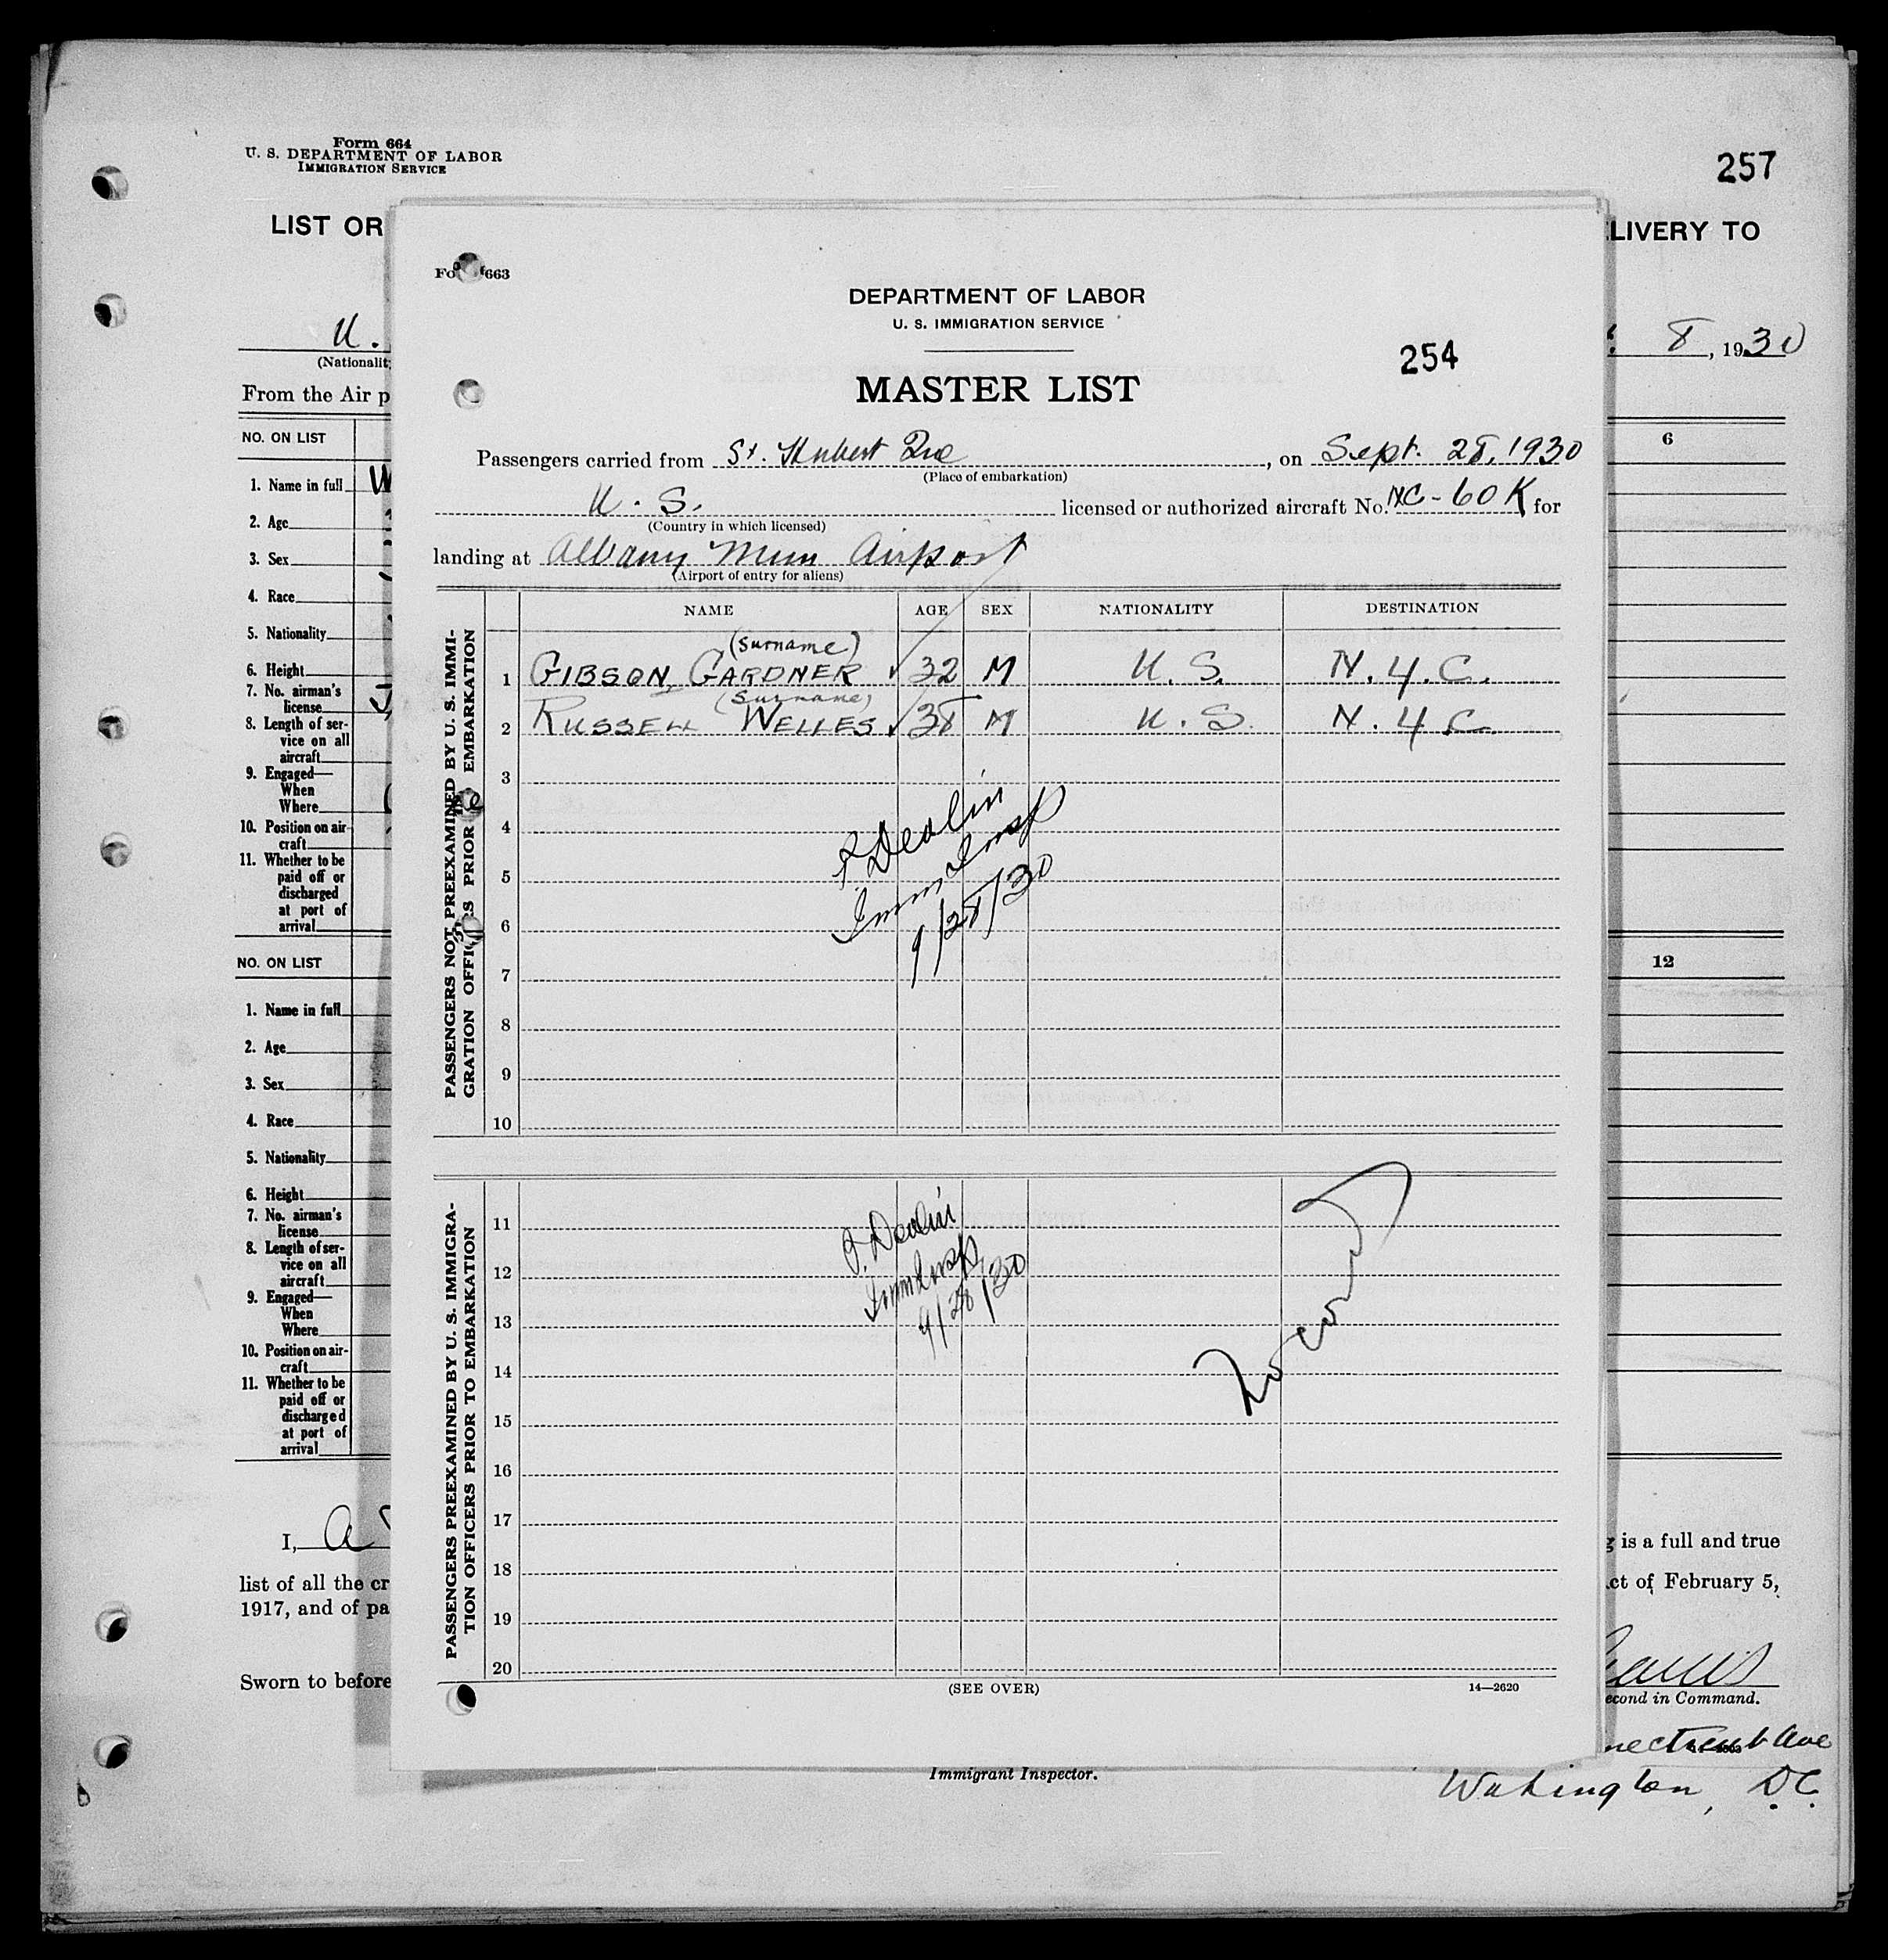 Form 664
U. S. DEPARTMENT OF LABOR
IMMIGRATION SERVICE
257
LIST OR
LIVERY TO
U.
8, 1930
(Nationalit
From the Air p
NO. ON LIST
6
1. Name in full
2. Age
3. Sex
4. Race
5. Nationality
6. Height
7. No. airman's
license
8. Length of ser-
vice on all
aircraft
9. Engaged—
When
Where
10. Position on air-
craft
11. Whether to be
paid off or
discharged
at port of
arrival
NO. ON LIST
12
1. Name in full
2. Age
3. Sex
4. Race
5. Nationality
6. Height
7. No. airman's
license
8. Length of ser-
vice on all
aircraft
9. Engaged—
When
Where
10. Position on air-
craft
11. Whether to be
paid off or
discharged
at port of
arrival
I, A
g is a full and true
list of all the cr
ct of February 5,
1917, and of pa
Sworn to before
econd in Command.
necticut Ave
Immigrant Inspector.
Wahington, D.C.
663
DEPARTMENT OF LABOR
U. S. IMMIGRATION SERVICE
254
MASTER LIST
Passengers carried from St. Hubert Que, on Sept. 28, 1930
(Place of embarkation)
U. S. licensed or authorized aircraft No. NC-60K for
(Country in which licensed)
landing at Albany Mun Airport
(Airport of entry for aliens)
NAME AGE SEX NATIONALITY DESTINATION
PASSENGERS NOT PREEXAMINED BY U. S. IMMI-
GRATION OFFICERS PRIOR TO EMBARKATION
(Surname)
1 GIBSON, GARDNER ✓ 32 M U. S. N.Y.C.
(Surname)
2 RUSSELL WELLES ✓ 38 M U. S. N.Y.C.
3
4
5
6
7
8
9
10
Devlin
Imm Insp
9/28/30
PASSENGERS PREEXAMINED BY U. S. IMMIGRA-
TION OFFICERS PRIOR TO EMBARKATION
11
12
13
14
15
16
17
18
19
20
Devlin
Imm Insp
9/28/30
(SEE OVER)
14—2620